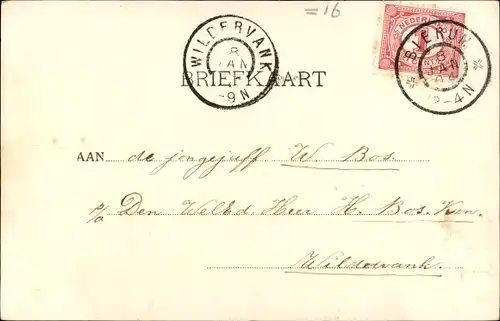 =16
NEDERLAND
WILDERVANK
8
JAN
-9N
BIERUM
8
JAN
12-4N
BRIEFKAART
AAN de jongejuff W. Bos.
p/a Den WelEd. Heer H. Bos. Kzn.
Wildervank.